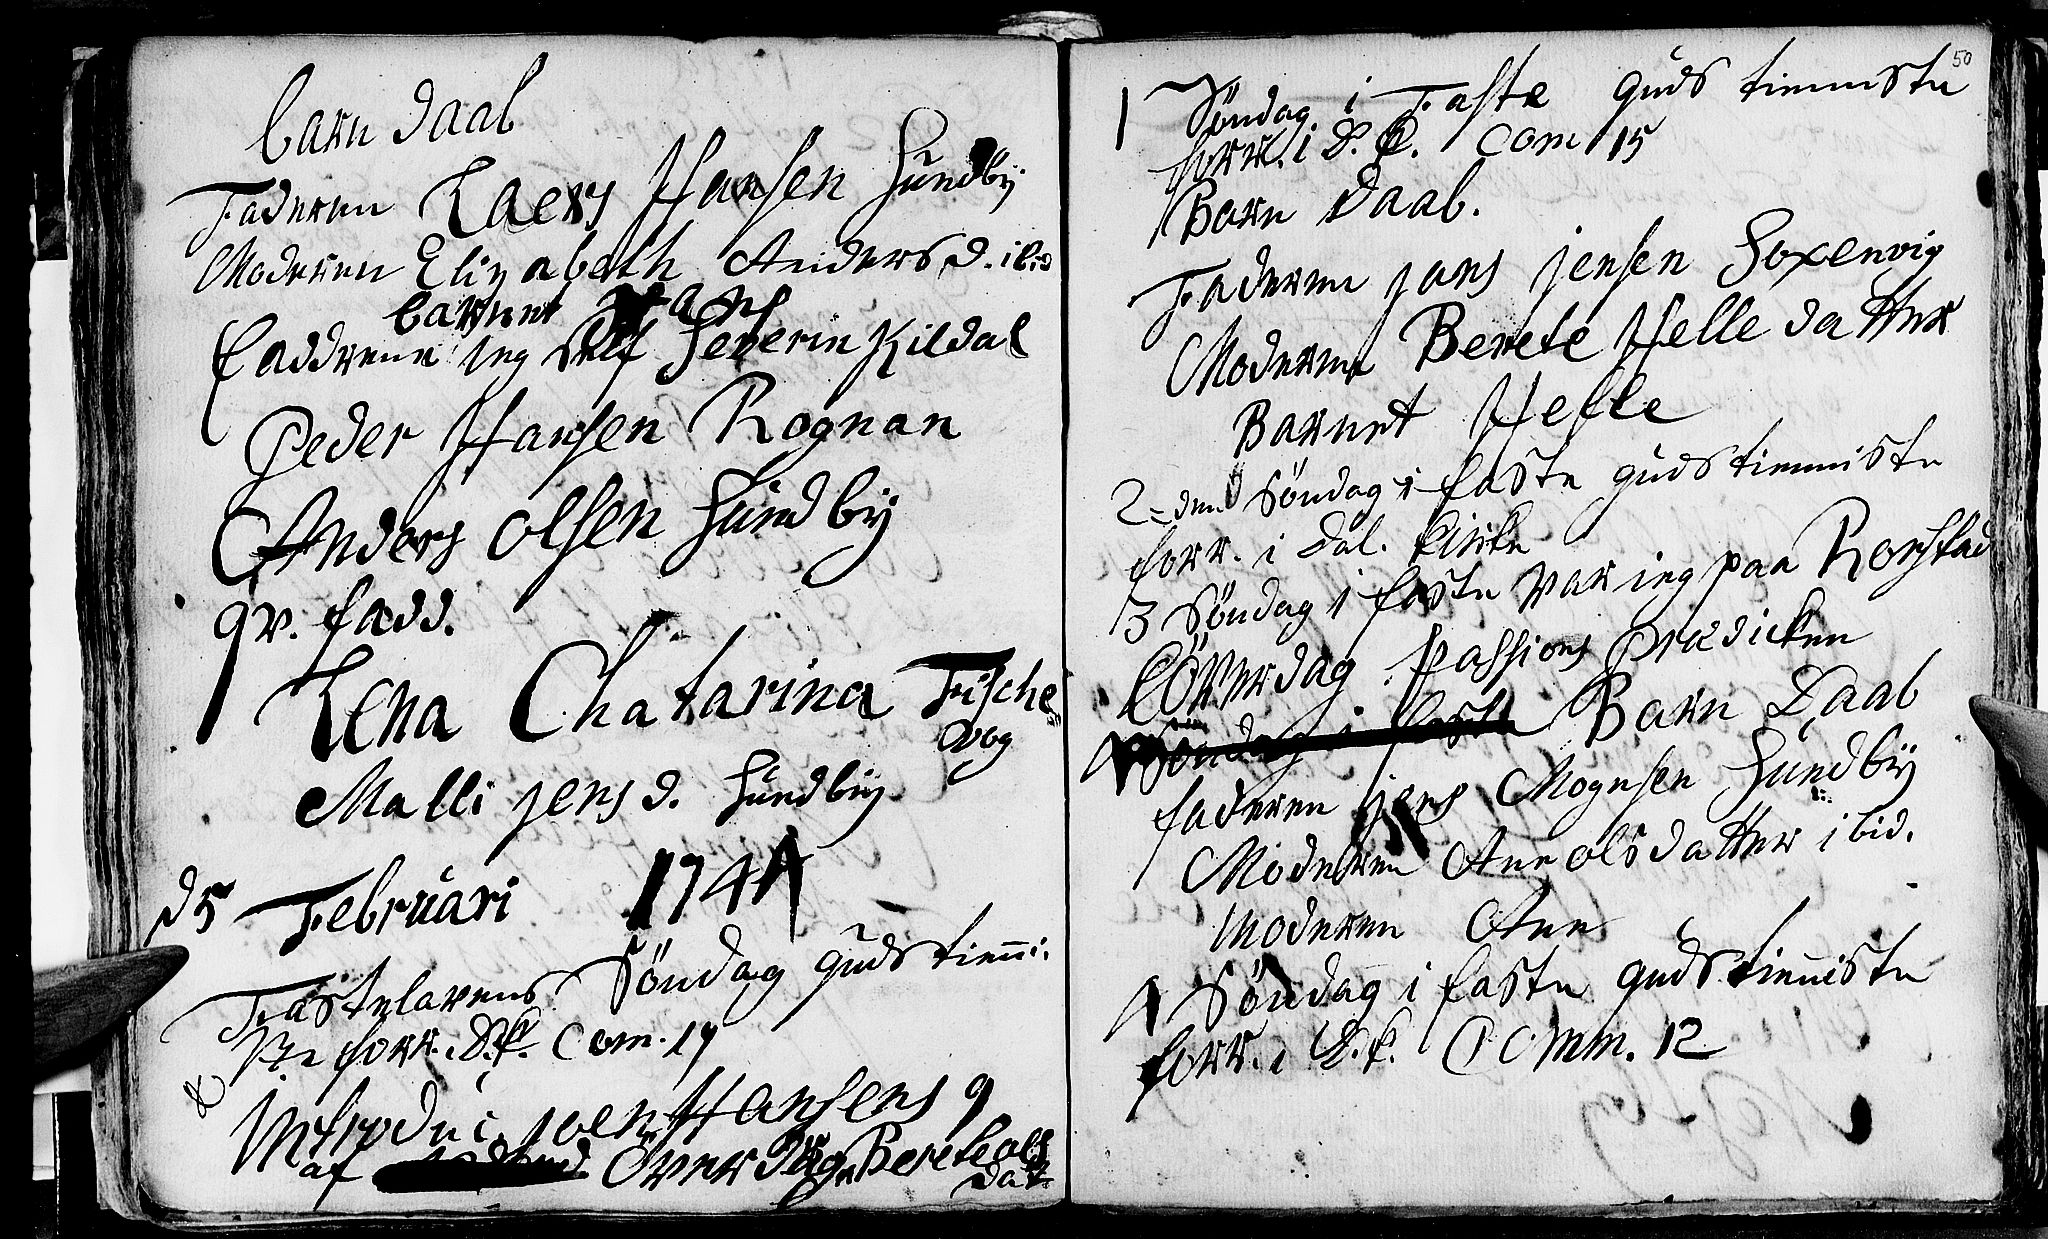 barn daab
Faderen Laers Hansen Sundby
Moderen Elizabeth Anders d. ibid
barnet Hans
faddrene jeg self Severin Kildal
Peder Hansen Rognan
Anders Olsen Sundby
qv. fadd.
Lena Chatarina Fische
Malli jens d. Sundby
d 5 Februari 1741
Fastelavens Söndag guds tieni:
ste forr. D.k. Com. 17
Introduc. joen Hansens q
af Över Berete ols
dat
50
1 Söndag i Faste guds tienniste
forr. i D. k. Com 15
Barn Daab.
Faderen jans jensen Soxenvig
Moderen Berete Helle datter
Barnet Helle
2=den Söndag i faste guds tienniste
forr. i Dal. kirke
3 Söndag i faste var ieg paa Rorstad
Löverdag passions Prædicken
Söndag i faste Barn Daab
faderen jens Mognsen Sundby
Moderen Ane ols datter ibid.
Moderen Ane
4 Söndag i faste guds tienniste
forr. i D. k. Comm. 12